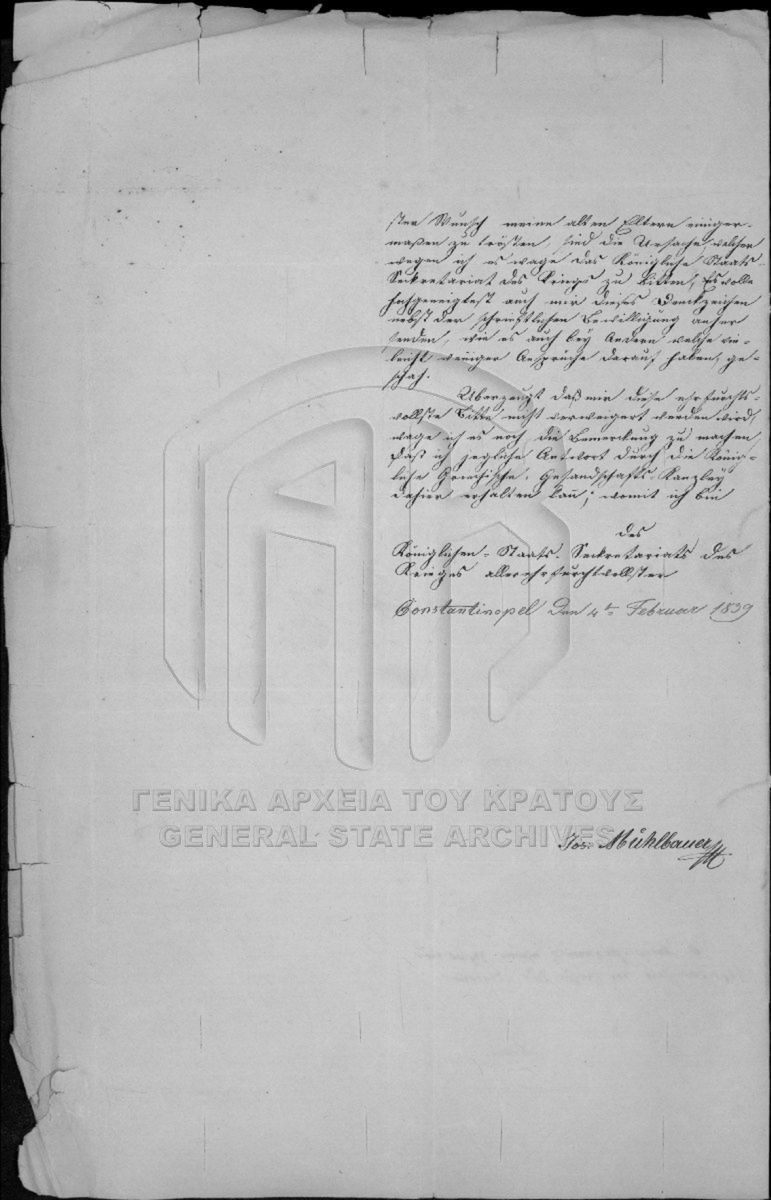 sten Wunsch meine alten Eltern einiger-
maßen zu trösten, sind die Ursache, welcher
wegen ich es wage das Königliche Staats-
Sekretariat des Kriegs zu bitten, Es wolle
hochgeneigtest auch mir dieses Denkzeichen
nebst der schriftlichen Bewilligung anher
senden, wie es auch bey Andern welche vie-
leicht weniger Ansprüche darauf haben, ge-
schah.
Überzeugt daß mir diese ehrfurchts-
vollste Bitte nicht verweigert werden wird,
wage ich es noch die Bemerkung zu machen,
daß ich jegliche Antwort durch die König-
liche Griechische Gesandschafts-Kanzley
dahier erhalten kan; womit ich bin
des
Königlichen-Staats-Sekretariats des
Krieges allerehrfurchtvollster
Constantinopel den 4ten Februar 1839
ΓΕΝΙΚΑ ΑΡΧΕΙΑ ΤΟΥ ΚΡΑΤΟΥΣ
GENERAL STATE ARCHIVES
Jos: Mühlbauer